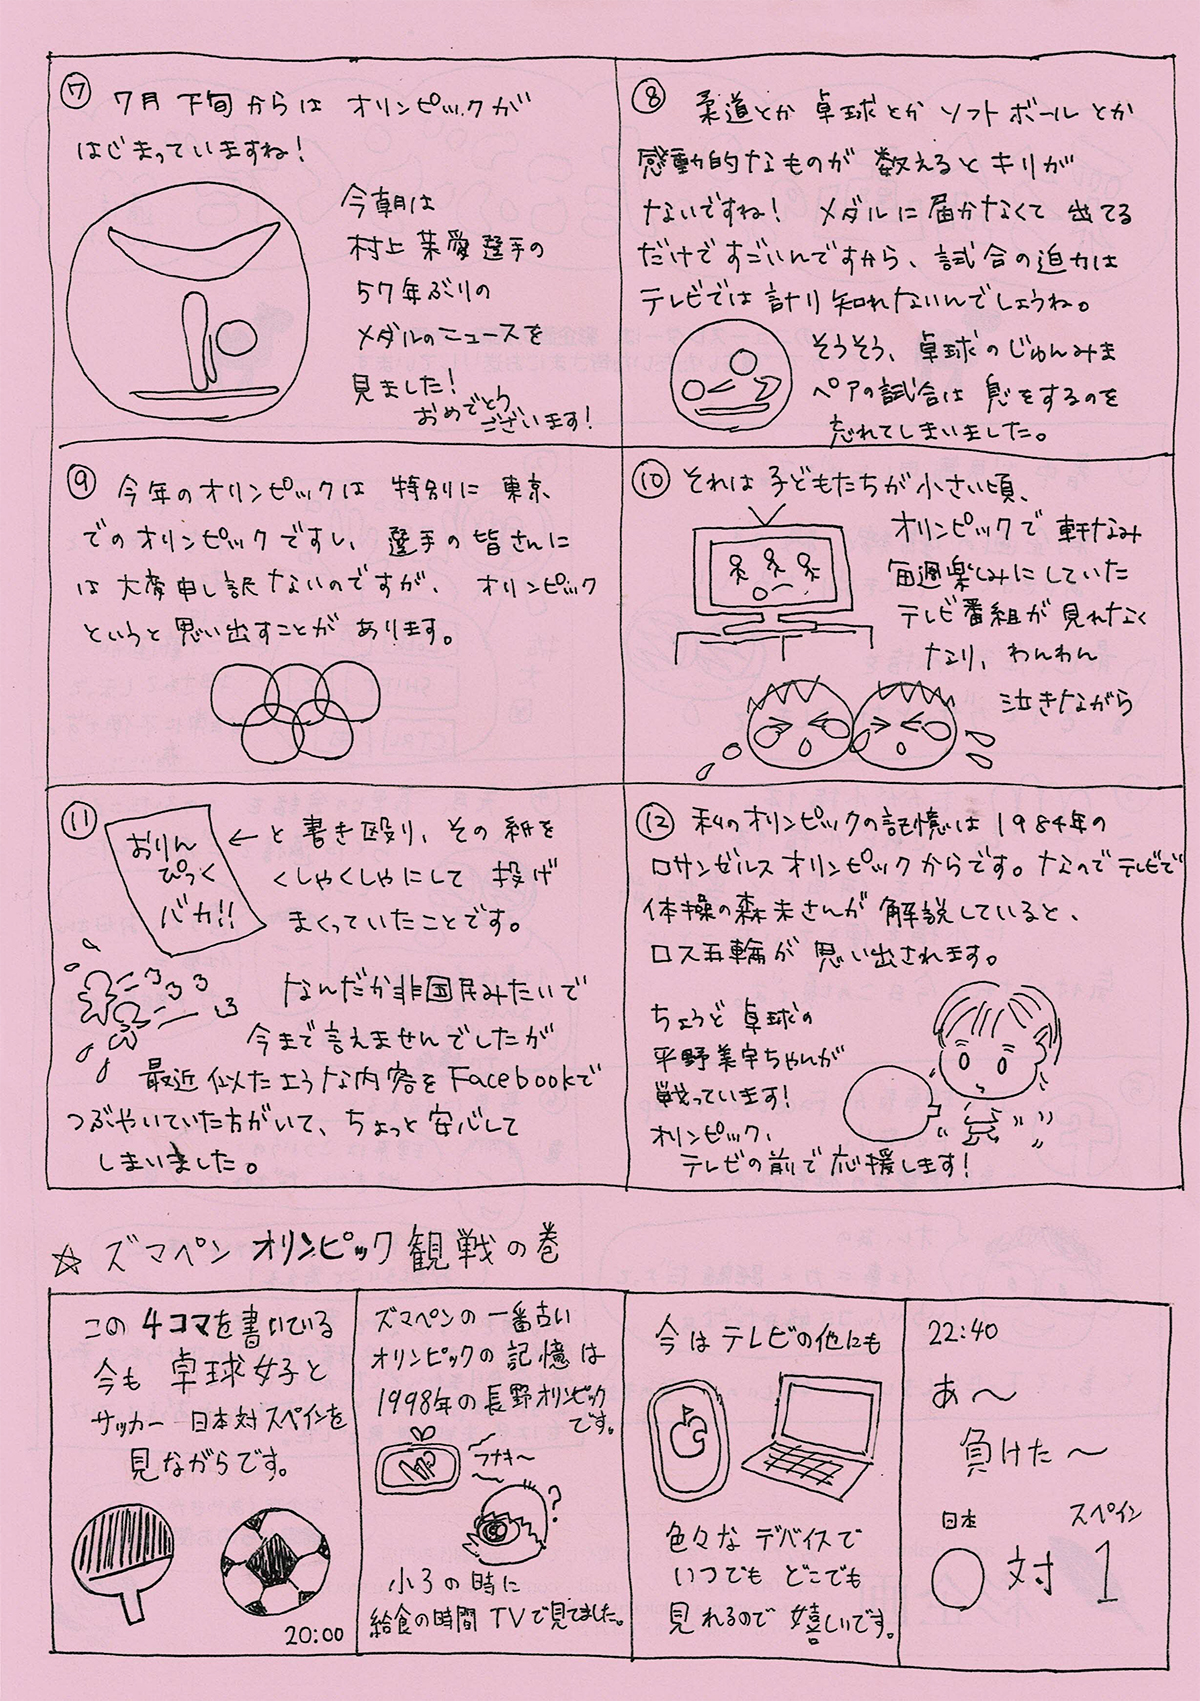 ⑦ 7月下旬からは オリンピックが
はじまっていますね!
今朝は
村上茉愛選手の
57年ぶりの
メダルのニュースを
見ました!
おめでとう
ございます!
⑧ 柔道とか 卓球とか ソフトボールとか
感動的なものが 数えるとキリが
ないですね! メダルに届かなくて 出てる
だけですごいんですから、試合の迫力は
テレビでは計り知れないんでしょうね。
そうそう、卓球のじゅんみま
ペアの試合は 息をするのを
忘れてしまいました。
⑨ 今年のオリンピックは 特別に 東京
でのオリンピックですし、選手の皆さんに
は大変申し訳ないのですが、オリンピック
というと思い出すことがあります。
⑩ それは子どもたちが小さい頃、
オリンピックで軒なみ
毎週楽しみにしていた
テレビ番組が見れなく
なり、わんわん
泣きながら
⑪ おりん
ぴっく
バカ!!
←と書き殴り、その紙を
くしゃくしゃにして 投げ
まくっていたことです。
なんだか非国民みたいで
今まで言えませんでしたが
最近似たような内容をFacebookで
つぶやいていた方がいて、ちょっと安心して
しまいました。
⑫ 私のオリンピックの記憶は1984年の
ロサンゼルスオリンピックからです。なのでテレビで
体操の森末さんが解説していると、
ロス五輪が思い出されます。
ちょうど卓球の
平野美宇ちゃんが
戦っています!
オリンピック、
テレビの前で応援します!
☆ズマペン オリンピック観戦の巻
この4コマを書いている
今も 卓球女子と
サッカー 日本対スペインを
見ながらです。
20:00
ズマペンの一番古い
オリンピックの記憶は
1998年の長野オリンピック
です。
フナキ〜
?
小3の時に
給食の時間TVで見てました。
今はテレビの他にも
色々なデバイスで
いつでもどこでも
見れるので嬉しいです。
22:40
あ〜
負けた〜
日本 スペイン
0対1